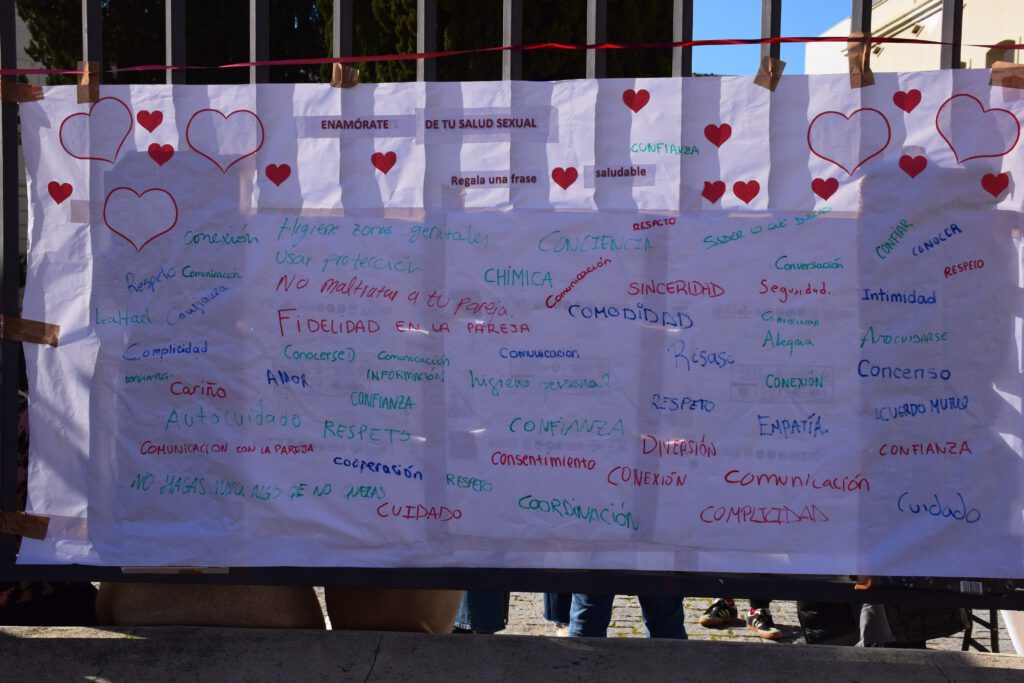 ENAMÓRATE DE TU SALUD SEXUAL
CONFIANZA
Regala una frase saludable
Conexión
Higiene zonas genitales
CONCIENCIA
RESPETO
SABER LO QUE
CONFIAR
CONOCER
Usar protección
Respeto
Comunicación
CHÍMICA
Comunicación
Conversación
RESPETO
No maltratar a tu pareja.
SINCERIDAD
Seguridad.
Intimidad
lealtad
Confianza
FIDELIDAD EN LA PAREJA
COMODIDAD
Comunicación
Alegria
AUTOCUIDARSE
Complicidad
Conocerse:)
Comunicacción
Comunicacion
Risas
INFORMACIÓN
AMOR
higiene personal
CONEXIÓN
Concenso
Cariño
CONFIANZA
RESPETO
ACUERDO MUTUO
Autocuidado
RESPETO
CONFIANZA
EMPATÍA.
COMUNICACION CON LA PAREJA
DIVERSIÓN
CONFIANZA
Cooperación
Consentimiento
CONEXIÓN
Comunicación
NO HAGAS NUNCA ALGO QE NO QUIERAS
RESPETO
CUIDADO
COORDINACIÓN
COMPLICIDAD
Cuidado